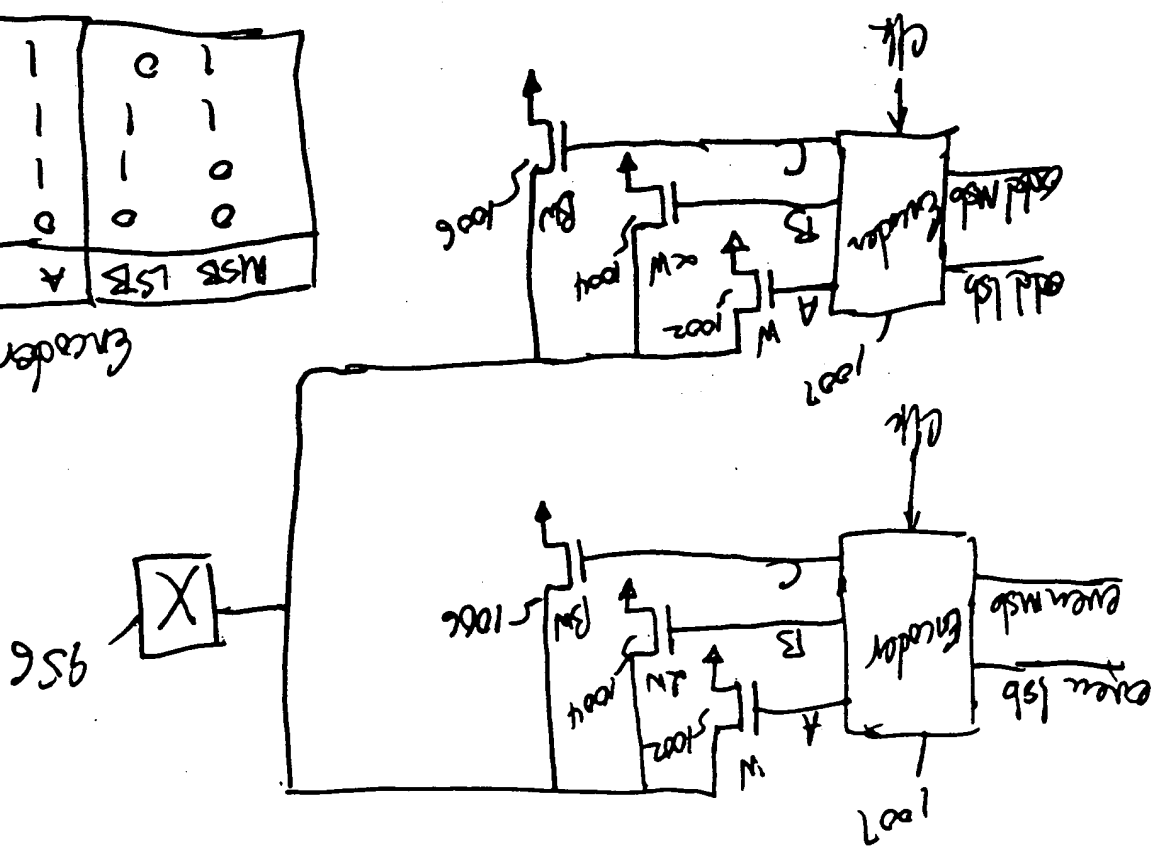 1007
even lsb
even msb
Encoder
A
B
C
W
1002
1004
βW
1006
Clk
956
X
1007
odd lsb
odd Msb
Encoder
A
B
C
W
1002
αW
1004
βW
1006
Clk
Encoder
MSB LSB A
0 0 0
0 1 1
1 1 1
1 0 1